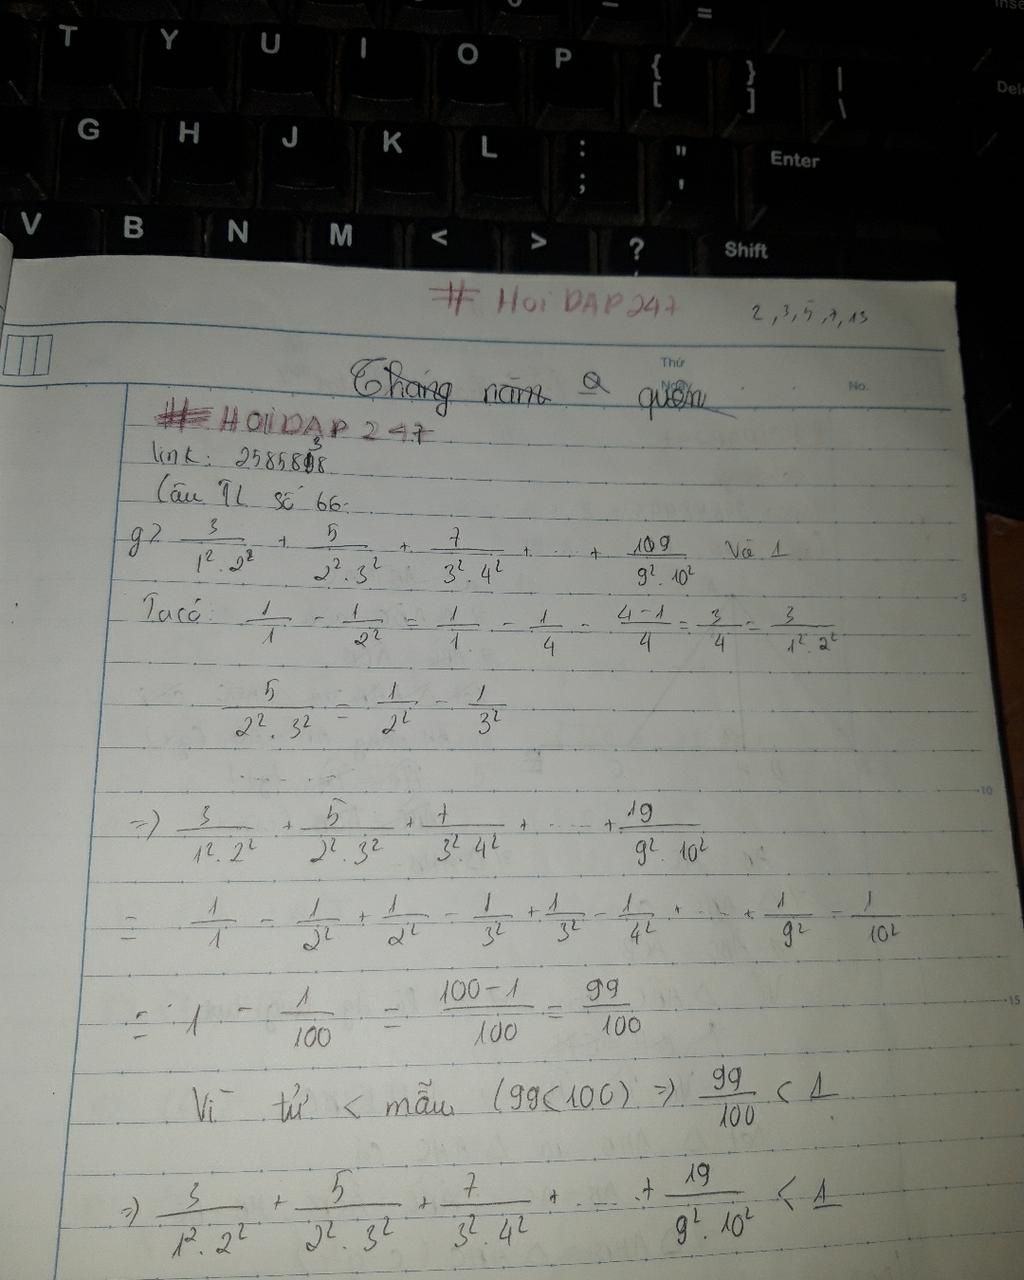 _ =
T Y U I O P { [ } ] | \
Inse
Dele
G H J K L : ; " ' Enter
V B N M < > ? Shift
# HOI DAP 247
2, 3, 5, 7, 13
Thứ
Ngày
No.
Tháng năm a quên
# HOIDAP 247
link:
Câu TL số 66.
g> 3/(1².2²) + 5/(2².3²) + 7/(3².4²) + ... + 109/(9².10²) Và 1
5
Ta có: 1/1 - 1/2² = 1/1 - 1/4 = (4-1)/4 = 3/4 = 3/(1².2²)
5/(2².3²) = 1/2² - 1/3²
.......
10
=> 3/(1².2²) + 5/(2².3²) + 7/(3².4²) + ..... + 19/(9².10²)
= 1/1 - 1/2² + 1/2² - 1/3² + 1/3² - 1/4² + ... + 1/9² - 1/10²
= 1 - 1/100 = (100-1)/100 = 99/100
15
Vì tử < mẫu (99<100) => 99/100 < 1
=> 3/(1².2²) + 5/(2².3²) + 7/(3².4²) + .... + 19/(9².10²) < 1